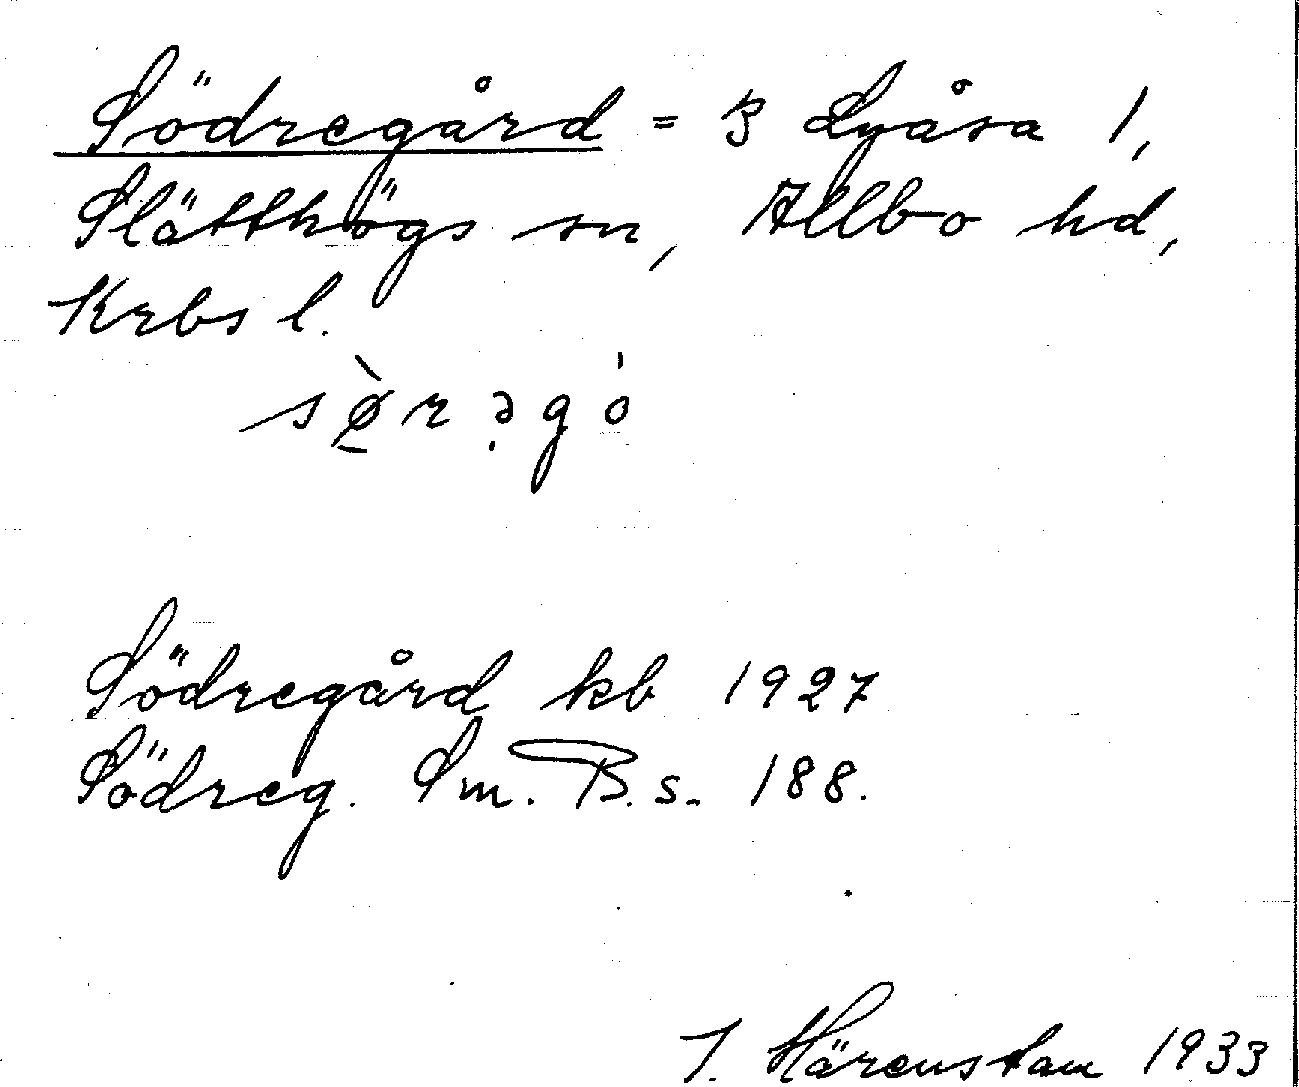 Södregård = 3 Lyåsa 1,
Slätthögs sn, Allbo hd,
Krbs l.
sø̀rəgó
Södregård kb 1927
Södreg. Sm. B.s. 188.
J. Härenstam 1933